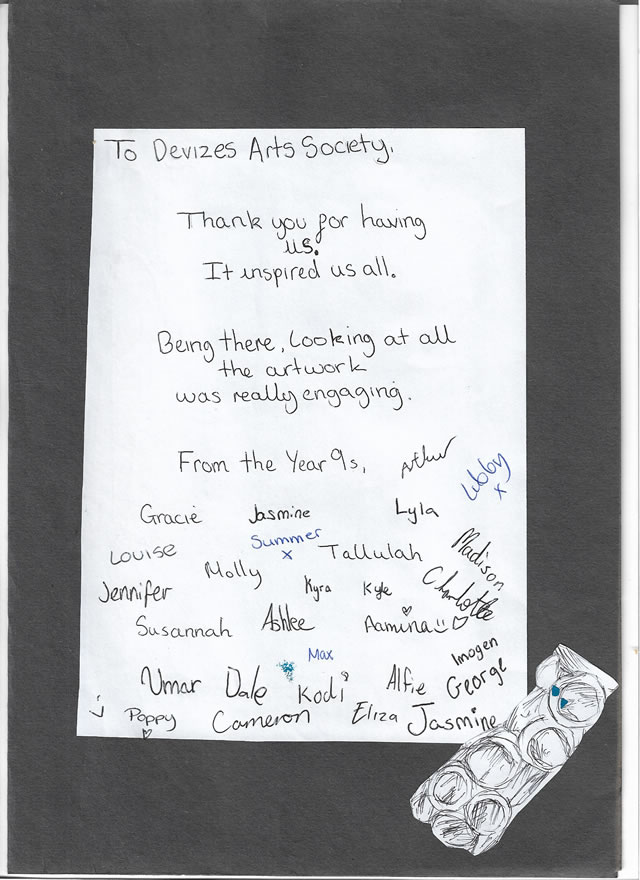 To Devizes Arts Society,
Thank you for having
us.
It inspired us all.
Being there, Looking at all
the artwork
was really engaging.
From the Year 9s,
Arthur
Libby x
Gracie Jasmine Lyla
Louise Summer x Tallulah Madison
Jennifer Molly Kyra Kyle Charlotte
Susannah Ashlee Aamina
Max Imogen
Umar Dale Kodi Alfie George
Poppy Cameron Eliza Jasmine